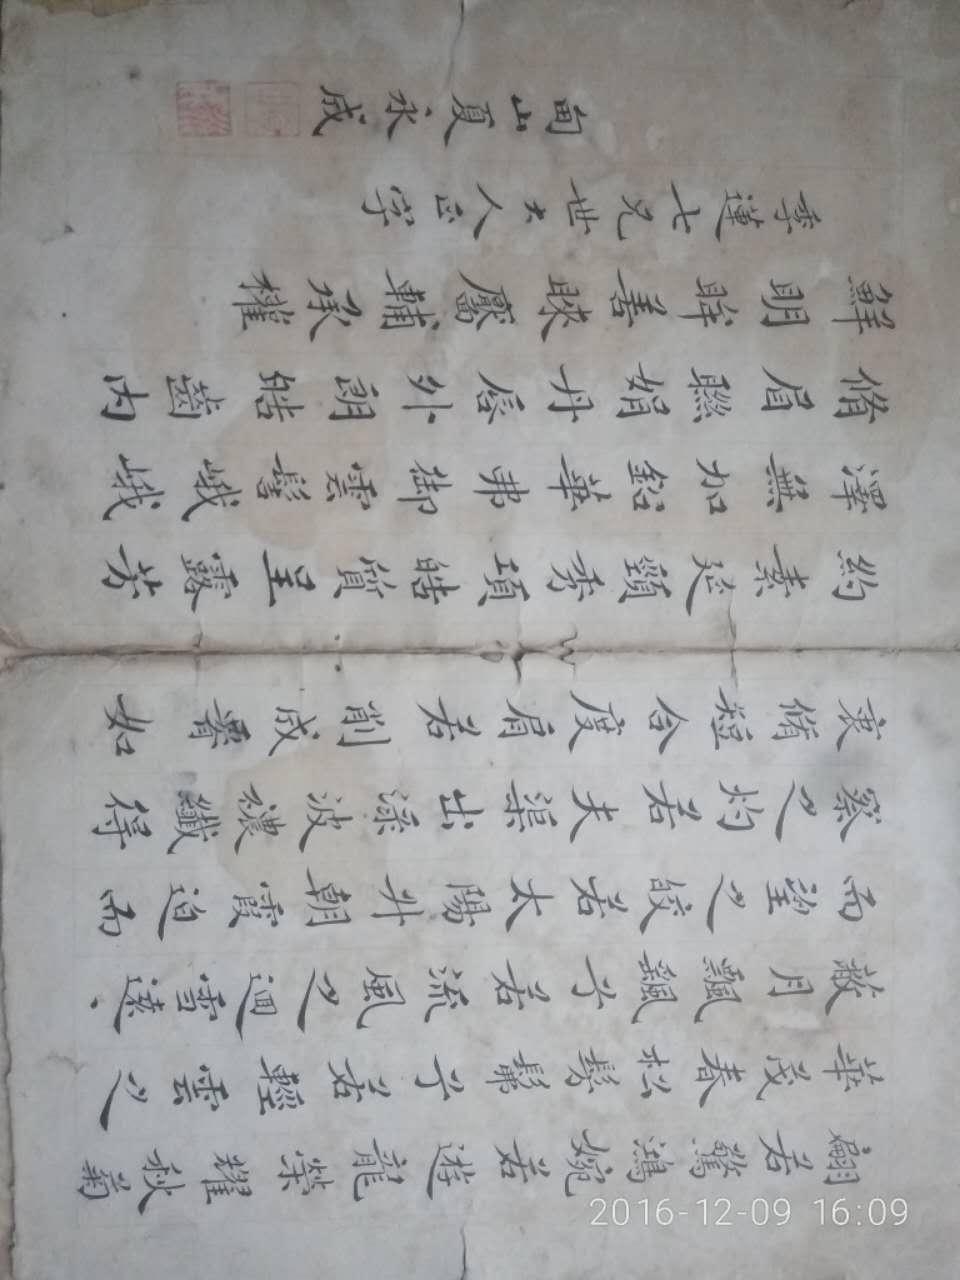 翩若驚鴻婉若遊龍榮耀秋菊
華茂春松髣髴兮若輕雲之
蔽月飄颻兮若流風之迴雪遠
而望之皎若太陽升朝霞迫而
察之灼若夫渠出淥波襛纖得
衷脩短合度肩若削成如
約素延頸秀項皓質呈露芳
澤無加鉛華弗御雲髻峨峨
脩眉聯娟丹唇外朗皓齒內
鮮明眸善睞靨輔承權
季蓮七兄世大人正字
甸山夏永成
2016-12-09 16:09